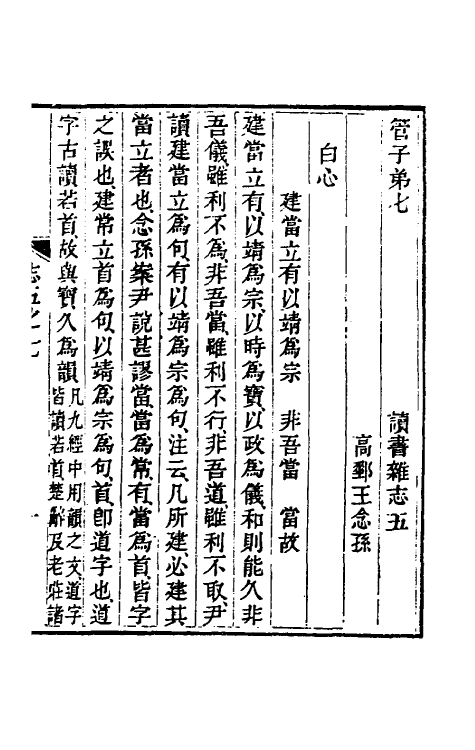 管子弟七　　　　讀書雜志五
高郵王念孫
白心
建當立有以靖爲宗　非吾當　當故
建當立有以靖爲宗以時爲寶以政爲儀和則能久非
吾儀雖利不爲非吾當雖利不行非吾道雖利不取尹
讀建當立爲句有以靖爲宗爲句注云凡所建必建其
當立者也念孫案尹說甚謬當當爲常有當爲首皆字
之誤也建常立首爲句以靖爲宗爲句首卽道字也道
字古讀若首故與寶久爲韻凡九經中用韻之文道字皆讀若首楚辭及老莊諸
志五之七
一